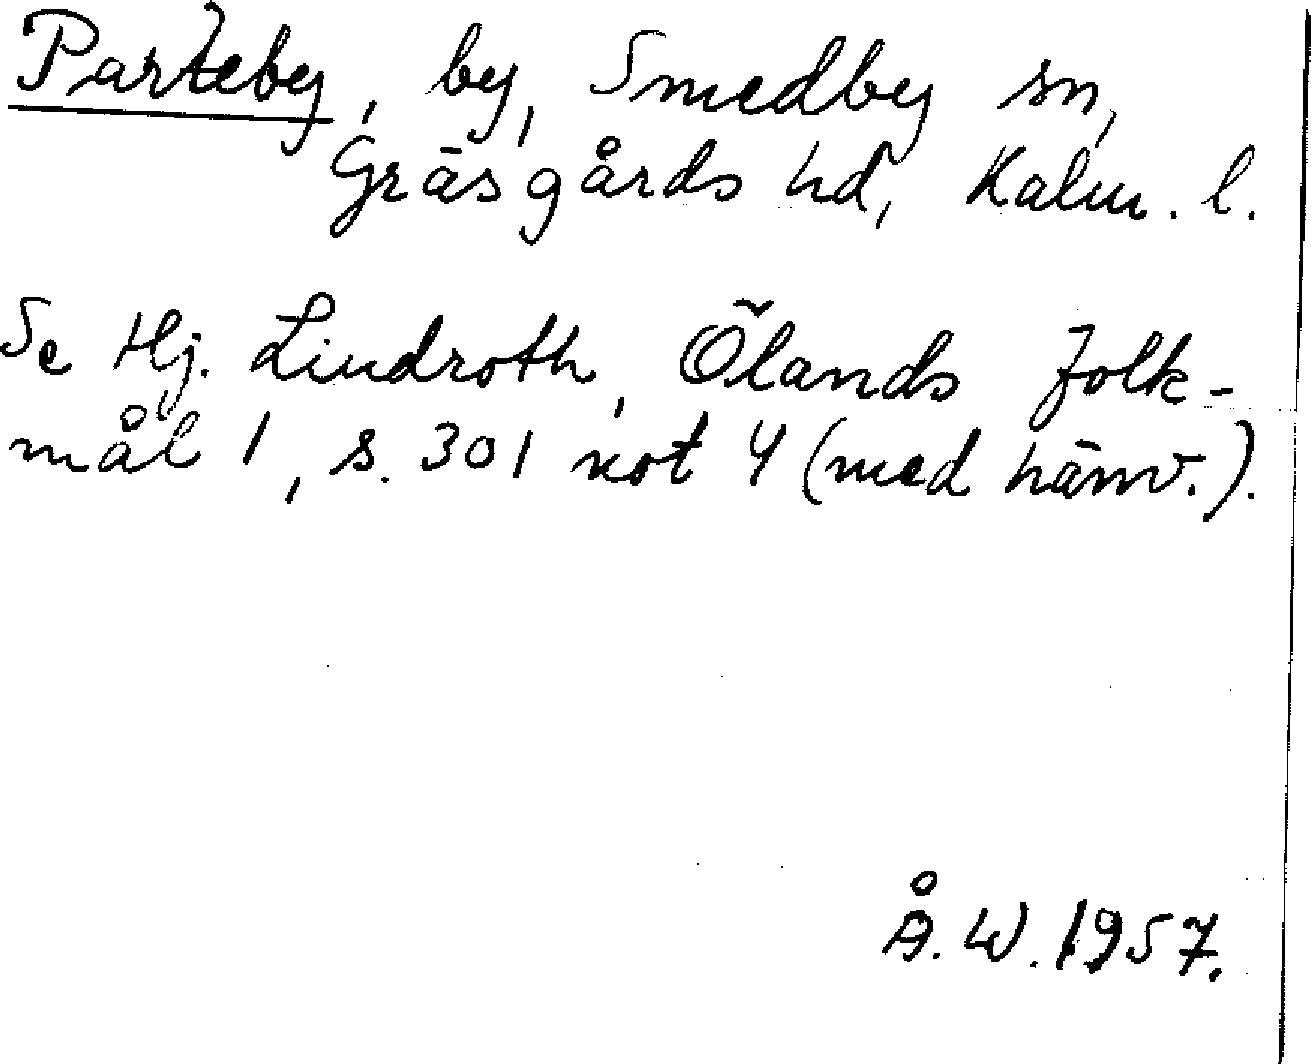 Parteby, by, Smedby sn,
Gräsgårds hd, Kalm. l.
Se Hj. Lindroth, Ölands folk-
mål 1, s. 301 not 4 (med hänv.).
Å.W. 1957.